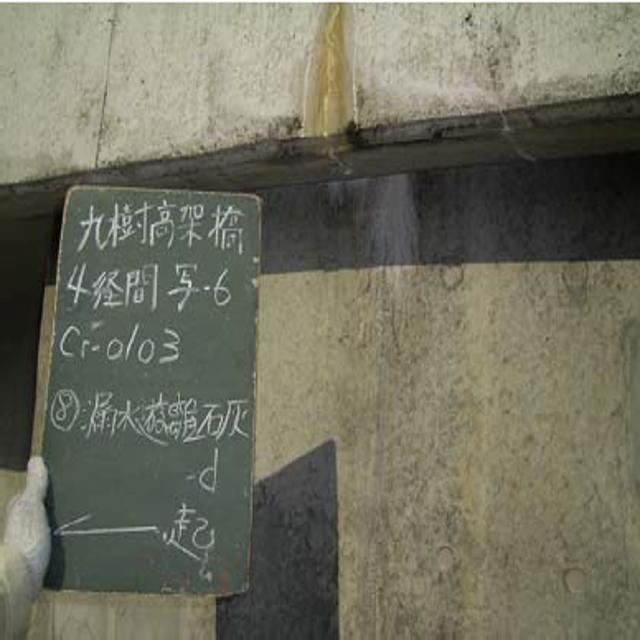 九樹高架橋
4径間 写-6
Cr-0103
⑧漏水遊離石灰
-d
←起